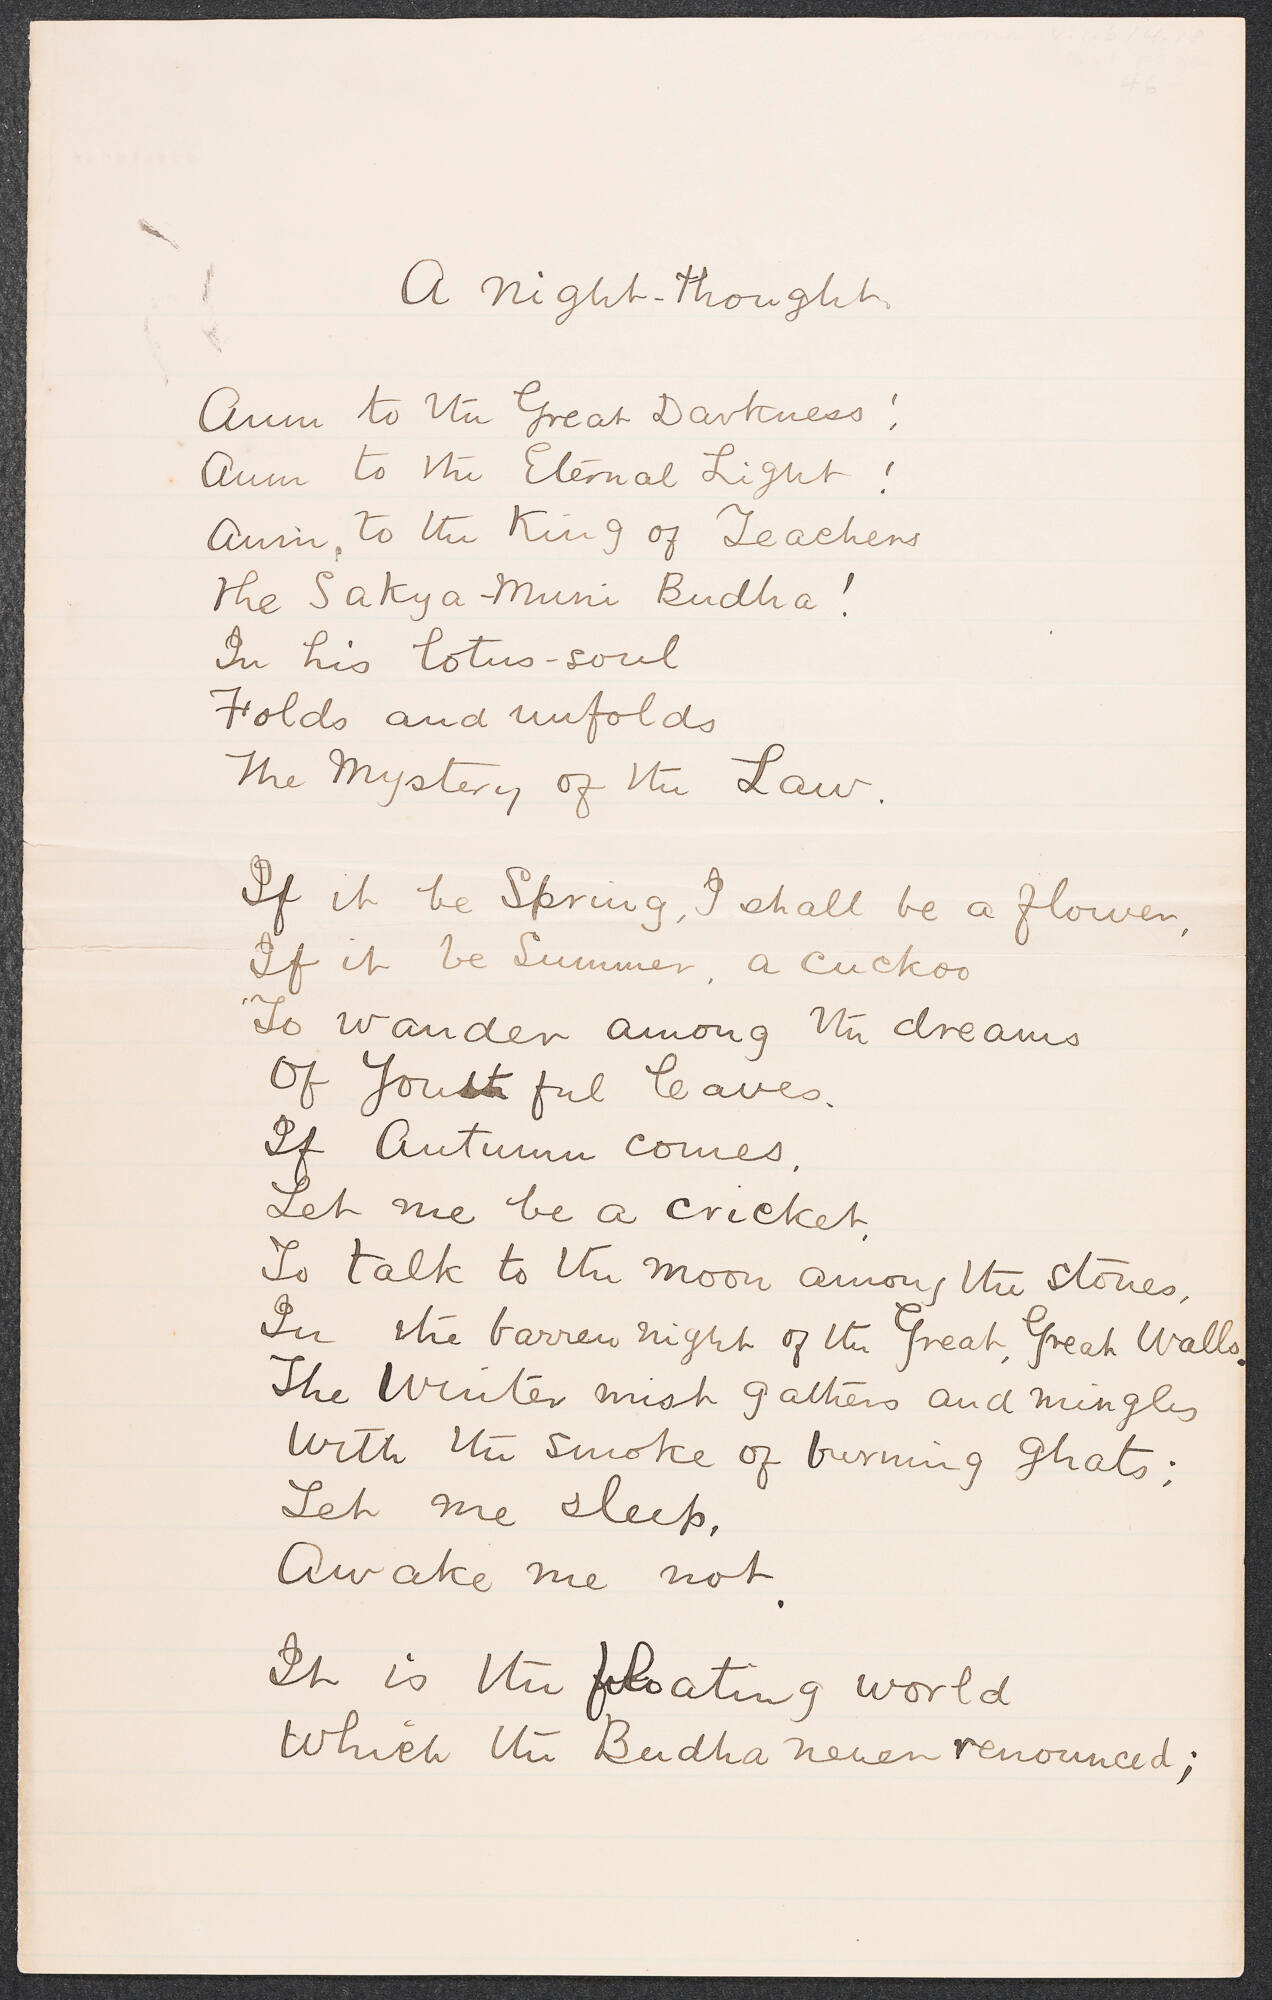 A night-thought.
Aum to the Great Darkness!
Aum to the Eternal Light!
Aum, to the King of Teachers
the Sakya-Muni Budha!
In his lotus-soul
Folds and unfolds
The Mystery of the Law.
If it be Spring, I shall be a flower,
If it be Summer, a cuckoo
To wander among the dreams
Of Youthful leaves.
If Autumn comes,
Let me be a cricket,
To talk to the moon among the stones,
In the barren night of the Great, Great Walls.
The Winter mist gathers and mingles
With the smoke of burning ghats;
Let me sleep,
Awake me not.
It is the floating world
Which the Budha never renounced;